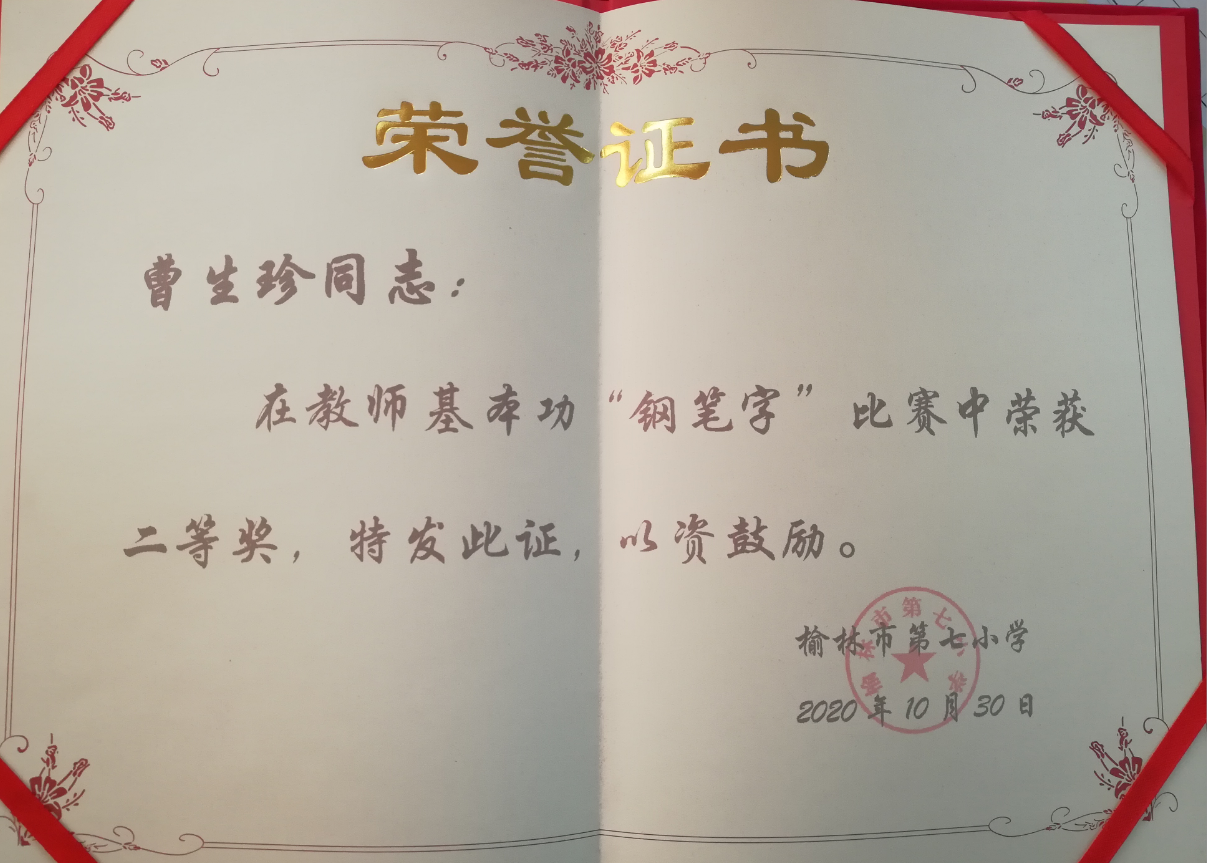 荣誉证书
曹生珍同志：
在教师基本功“钢笔字”比赛中荣获
二等奖，特发此证，以资鼓励。
榆林市第七小学
2020年10月30日
榆林市第七小学